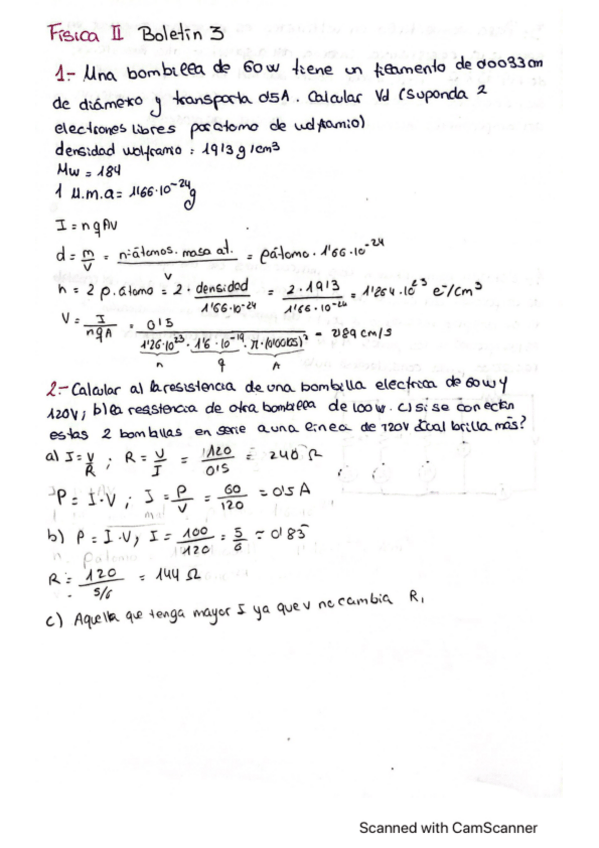 Física II Boletín 3
1.- Una bombilla de 60W tiene un filamento de 0'0033cm
de diámetro y transporta 0'5A. Calcular Vd (Suponda 2
electrones libres por átomo de wolframio)
densidad wolframio = 19'3 g/cm³
Mw = 184
1 u.m.a = 1'66·10⁻²⁴ g
I = nqAv
d = m/V = nº átomos · masa at. / V = ρátomo · 1'66·10⁻²⁴
n = 2 ρ. átomo = 2 · densidad / 1'66·10⁻²⁴ = 2·19'3 / 1'66·10⁻²⁴ = 1'264·10²³ e⁻/cm³
V = I / nqA = 0'5 / 1'26·10²³ · 1'6·10⁻¹⁹ · π · = 2'89 cm/s
n q A
2.- Calcular a) la resistencia de una bombilla electrica de 60W y
120V; b) la resistencia de otra bombilla de 100W. c) si se conectan
estas 2 bombillas en serie a una linea de 120V ¿Cual brilla más?
a) I = V/R ; R = V/I = 120/0'5 = 240 Ω
P = I·V ; I = P/V = 60/120 = 0'5 A
b) P = I·V, I = 100/120 = 5/6 = 0'83
R = 120 / 5/6 = 144 Ω
c) Aquella que tenga mayor I ya que v no cambia
Scanned with CamScanner